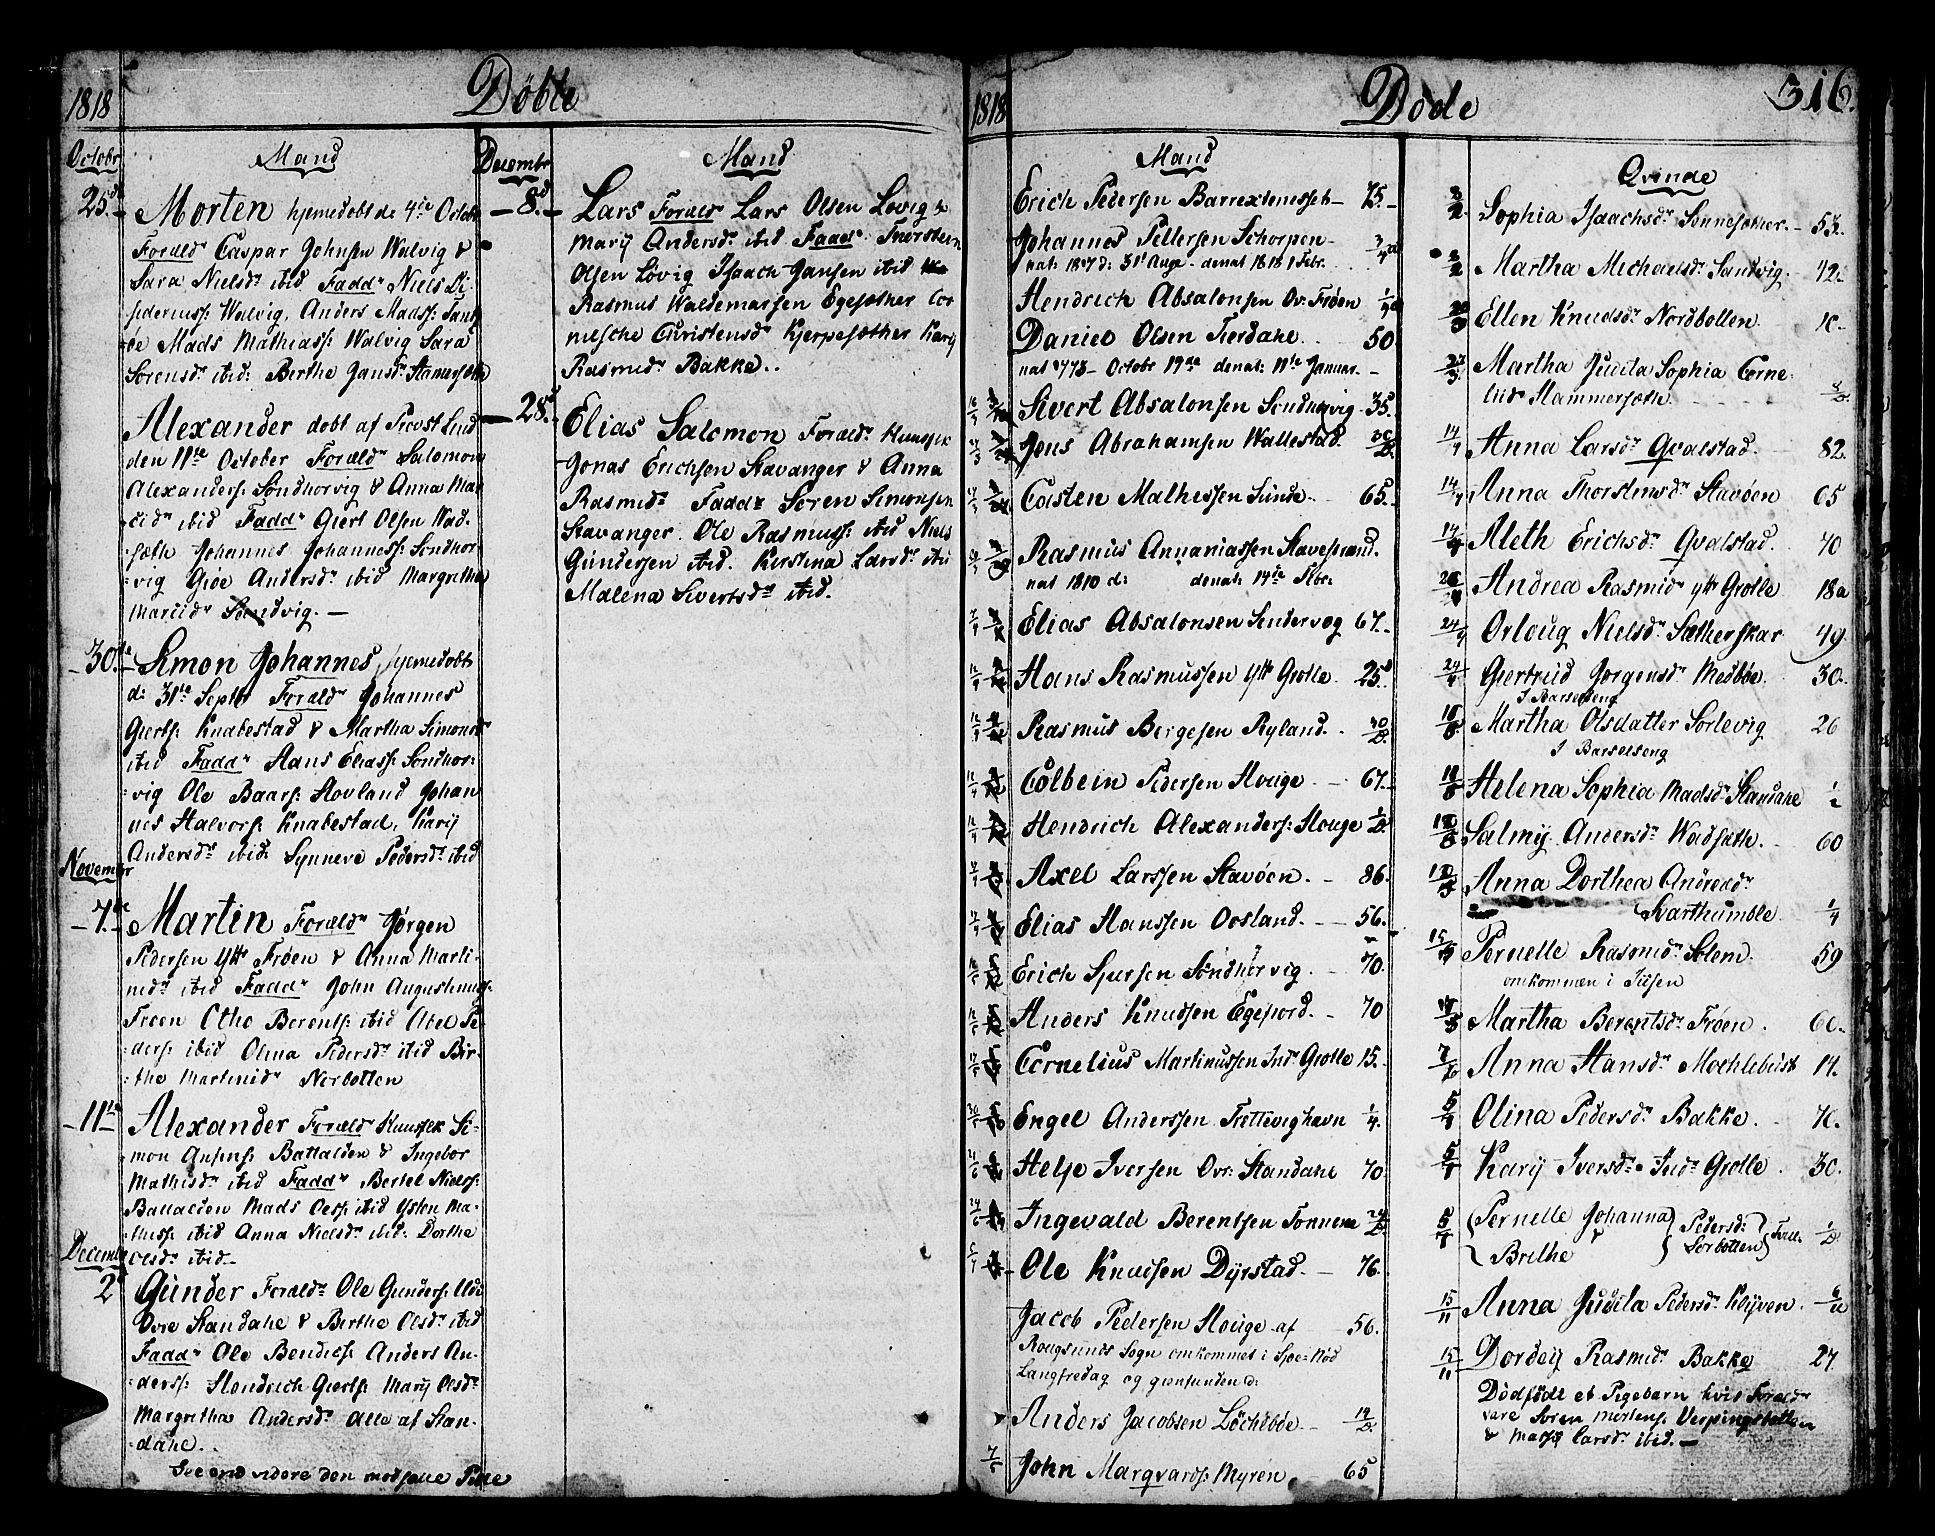 1818
Döbte
Octobr
Mand
25d
Morten hjemedobt de 4de Octobr
Foræld Caspar Johnsen Walvig &
Sara Nielsdr ibid Faddr Niels Di-
Walvig, Anders Madss:
Mads Mathiass: Walvig Sara
Sorensdr ibid: Berthe Jansdr Stamersæth
Alexander dobt af Provst Lind
den 11te October Forældr Salomon
Alexanders: Sondhorvig & Anna Mar-
tidr ibid Faddr Giert Olsen Wad-
sæth Johannes Johanness: Sondhor-
vig Gjöe Andersdr ibid Margretha
Martidr Sandvig. —
30te
Simon Johannes, hjemedobt
d: 31te Septbr Forældr Johannes
Gierts: Knabestad & Martha Simonsdr
ibid Faddr Hans Eliass: Sondhor-
vig Ole Baars: Hovland Johan
nes Halvors: Knabestad, Karij
Andersdr ibid: Synneve Pedersdr ibid
Novembr
7de
Martin Forældr Jörgen
Pedersen Ytt Fröen & Anna Marti-
nidr ibid Faddr John Augustinuss:
Froen Otho Berents: ibid Abel Pe-
ders: ibid Olina Pedersdr ibid Bir-
the Martinidr Norbotten
11te
Alexander Foræld Huusfck Si-
mon Ansens: Battalden & Ingebor
Mathisdr ibid Faddr Bertel Nielss:
Battalden Mads Oles: ibid Ysten Ma-
thiss: ibid Anna Nielsdr ibid: Dorthe
Olsdr ibid—
Decembr
2d
Gunder Forældr Ole Gunders:
Ovre Standahl & Berthe Olsdr ibid
Faddr Ole Bendics: Anders An-
derss: Hendrich Gierts: Marij Olsdr
Margretha Andersdr alle af Stan-
dahl..
See end videre den modsatte Side
Decembr
Mand
8d
Lars Foræls Lars Olsen Lövig &
Marij Andersdr ibid Faddr Thorstein
Olsen Lövig Isaach Jansen ibid
Rasmus Waldemarsen Egesæther Cor
nilsche Christensdr Kjerpesæther Karij
Rasmidr Bakke..
28d
Elias Salomon Forældr Huusfck
Jonas Erichsen Stavanger & Anna
Rasmidr Faddr Soren Simonsen
Stavanger. Ole Rasmuss: ibid Niels
Gundersen ibid. Kirstina Larsdr ibid
Malena Sivertsdr ibid.
1818
Dode
316.
Mand
Erich Pedersen Barrextensset — 75.
Johannes Pettersen Schorpen- 3/4
nat: 1817 d: 31t Auge denat 1818 1 Febr.
Hendrich Absalonsen Ov: Fröen 1/4
Daniel Olsen Tierdahl.. 50
nat 1773 — Octobr 19de denat: 11te Januar.—
Sivert Absalonsen Sondhorvig. 35.
Jens Abrahamsen Wallestad.
Carsten Mathissen Sunde. 65.
Rasmus Annaniassen Stavestrand.
nat 1810 d: denat: 14de Febr:
Elias Absalonsen Sundervog 67.
Hans Rasmussen Ytt Grotle. 25
Rasmus Börgesen Ryland. 30/D.
Colbein Pedersen Houge. 67.
Hendrich Alexanders: Houge 1/D.
Axel Larssen Stavöen. — 86.
Elias Hanssen Oosland. — 56.
Erich Spursen Söndhorvig. 70.
Anders Knudsen Egefiord. 70
Cornelius Martinussen Ind: Grotle 15.
Engel Anderssen Frettevighavn 1/4.
Helje Iversen Ovr: Standahl 70
Ingevald Berentsen Tonnem 24/D
Ole Knudsen Dyrstad. — 76.
Jacob Pedersen Houge af — 56.
Rougsunds Sogn omkommet i Spe-Nöd
Langfredag og gienfunden d:
Anders Jacobsen Löcheböe. — 14/D.
John Marqvards: Myren 65
Qvinde
Sophia Isaachsdr Sonnesæther. — 53.
Martha Michaelsdr Sandvig. 42.
Ellen Knudsdr Nordbotten.
Martha Judita Sophia Corne-
liidr Hammersæth.
14/4 Anna Larsdr Qvalstad. 82.
Anna Thorstensdr Stavöen 65
Aleth Erichsdr Qvalstad. 70
Andrea Rasmidr Ytt Grotle 18
24/4 Orloug Nielsdr Sætherskar 49.
24/4 Giertrud Jörgensdr Medböe. 30.
I Barselseng
Martha Olsdatter Sörlevig 26
I Barselseng
Helena Sophia Madsdr Standahl
Salmij Andersdr Wadsæth. 60
Anna Dorthea Andreadr
Svarthumble. 1/4
Pernelle Rasmidr Solem. 59
omkommen i Ilden
Martha Berentsdr Fröen.
Anna Hansdr Mochlebust
Olina Pedersdr Bakke. 70.
Karij Iversdr Indr Grotle. 30.
Pernelle Johanna
& Brethe
Pedersdr:
Sorbotten
Tvill. 1/D
15/11 Anna Judita Pedersdr Klyven.
15/11 Dordeij Rasmidr Bakke 27
Dödfödt et Pigebarn hvis Forældr
vare Soren Mortens: Verpingsbotten
& Marij Larsdr ibid.—